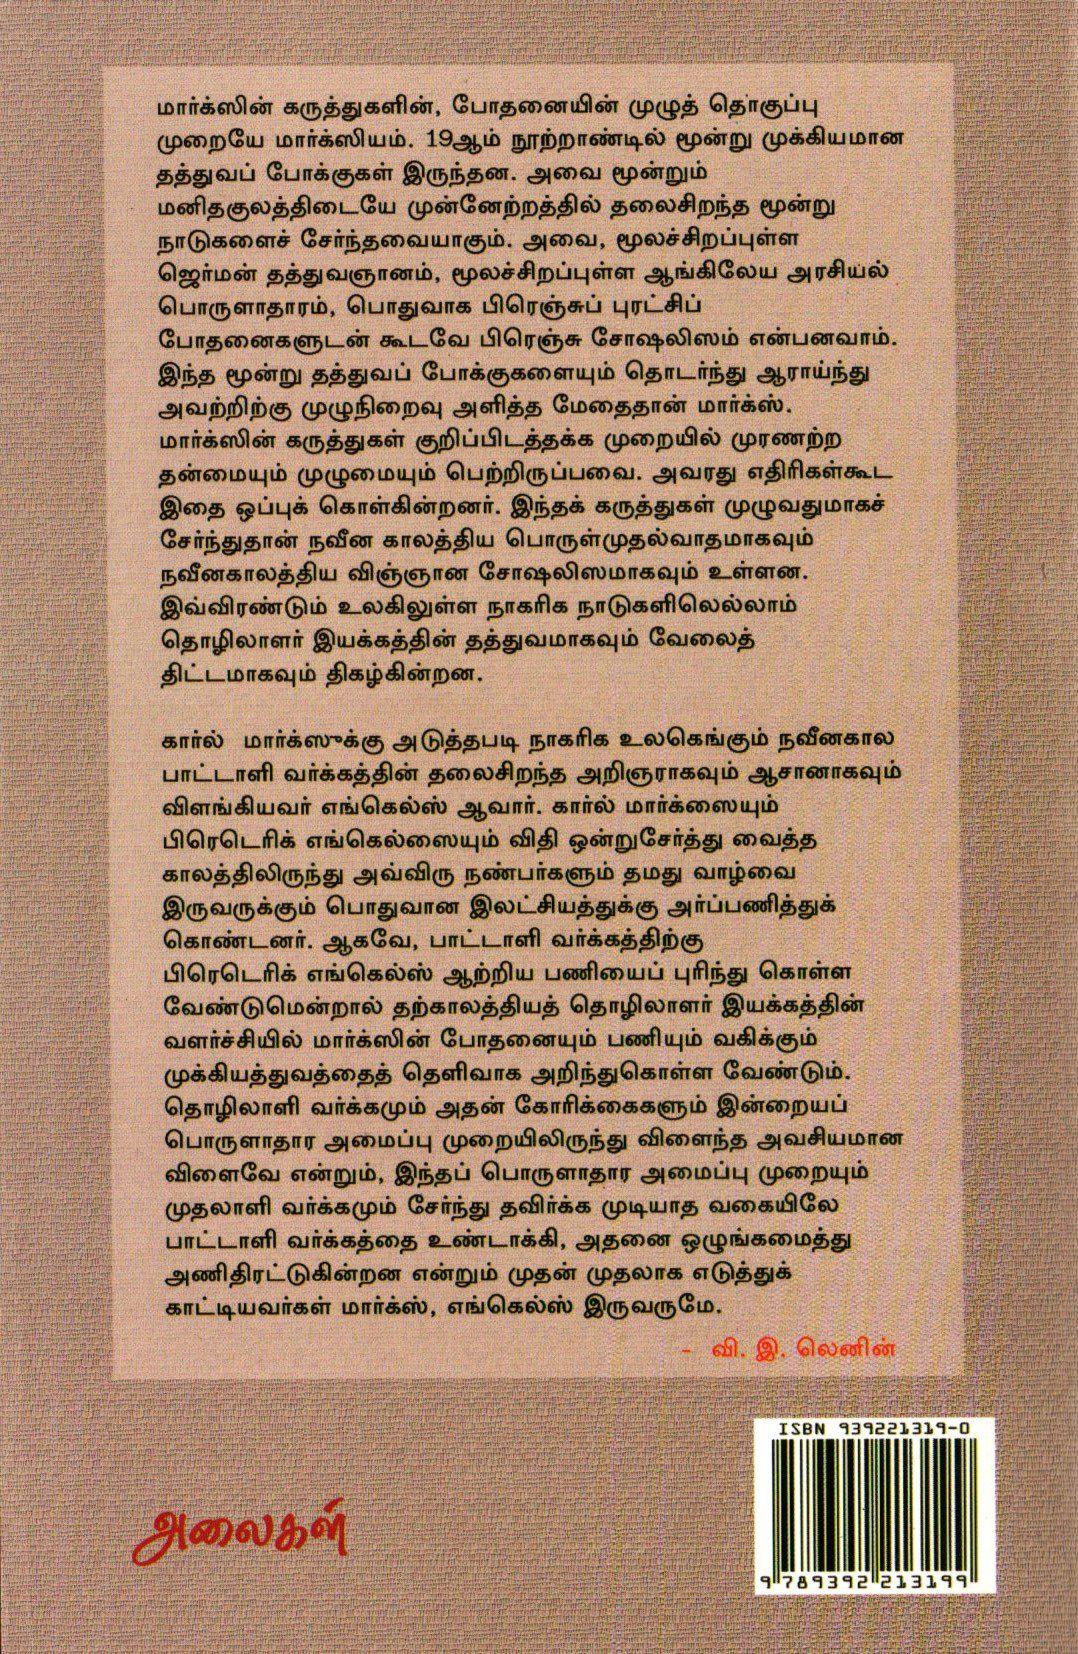 மார்க்ஸின் கருத்துகளின், போதனையின் முழுத் தொகுப்பு
முறையே மார்க்ஸியம். 19ஆம் நூற்றாண்டில் மூன்று முக்கியமான
தத்துவப் போக்குகள் இருந்தன. அவை மூன்றும்
மனிதகுலத்திடையே முன்னேற்றத்தில் தலைசிறந்த மூன்று
நாடுகளைச் சேர்ந்தவையாகும். அவை, மூலச்சிறப்புள்ள
ஜெர்மன் தத்துவஞானம், மூலச்சிறப்புள்ள ஆங்கிலேய அரசியல்
பொருளாதாரம், பொதுவாக பிரெஞ்சுப் புரட்சிப்
போதனைகளுடன் கூடவே பிரெஞ்சு சோஷலிஸம் என்பனவாம்.
இந்த மூன்று தத்துவப் போக்குகளையும் தொடர்ந்து ஆராய்ந்து
அவற்றிற்கு முழுநிறைவு அளித்த மேதைதான் மார்க்ஸ்.
மார்க்ஸின் கருத்துகள் குறிப்பிடத்தக்க முறையில் முரணற்ற
தன்மையும் முழுமையும் பெற்றிருப்பவை. அவரது எதிரிகள்கூட
இதை ஒப்புக் கொள்கின்றனர். இந்தக் கருத்துகள் முழுவதுமாகச்
சேர்ந்துதான் நவீன காலத்திய பொருள்முதல்வாதமாகவும்
நவீனகாலத்திய விஞ்ஞான சோஷலிஸமாகவும் உள்ளன.
இவ்விரண்டும் உலகிலுள்ள நாகரிக நாடுகளிலெல்லாம்
தொழிலாளர் இயக்கத்தின் தத்துவமாகவும் வேலைத்
திட்டமாகவும் திகழ்கின்றன.
கார்ல் மார்க்ஸுக்கு அடுத்தபடி நாகரிக உலகெங்கும் நவீனகால
பாட்டாளி வர்க்கத்தின் தலைசிறந்த அறிஞராகவும் ஆசானாகவும்
விளங்கியவர் எங்கெல்ஸ் ஆவார். கார்ல் மார்க்ஸையும்
பிரெடெரிக் எங்கெல்ஸையும் விதி ஒன்றுசேர்த்து வைத்த
காலத்திலிருந்து அவ்விரு நண்பர்களும் தமது வாழ்வை
இருவருக்கும் பொதுவான இலட்சியத்துக்கு அர்ப்பணித்துக்
கொண்டனர். ஆகவே, பாட்டாளி வர்க்கத்திற்கு
பிரெடெரிக் எங்கெல்ஸ் ஆற்றிய பணியைப் புரிந்து கொள்ள
வேண்டுமென்றால் தற்காலத்தியத் தொழிலாளர் இயக்கத்தின்
வளர்ச்சியில் மார்க்ஸின் போதனையும் பணியும் வகிக்கும்
முக்கியத்துவத்தைத் தெளிவாக அறிந்துகொள்ள வேண்டும்.
தொழிலாளி வர்க்கமும் அதன் கோரிக்கைகளும் இன்றையப்
பொருளாதார அமைப்பு முறையிலிருந்து விளைந்த அவசியமான
விளைவே என்றும், இந்தப் பொருளாதார அமைப்பு முறையும்
முதலாளி வர்க்கமும் சேர்ந்து தவிர்க்க முடியாத வகையிலே
பாட்டாளி வர்க்கத்தை உண்டாக்கி, அதனை ஒழுங்கமைத்து
அணிதிரட்டுகின்றன என்றும் முதன் முதலாக எடுத்துக்
காட்டியவர்கள் மார்க்ஸ், எங்கெல்ஸ் இருவருமே.
- வி. இ. லெனின்
ISBN 939221319-0
அலைகள்
9 789392 213199